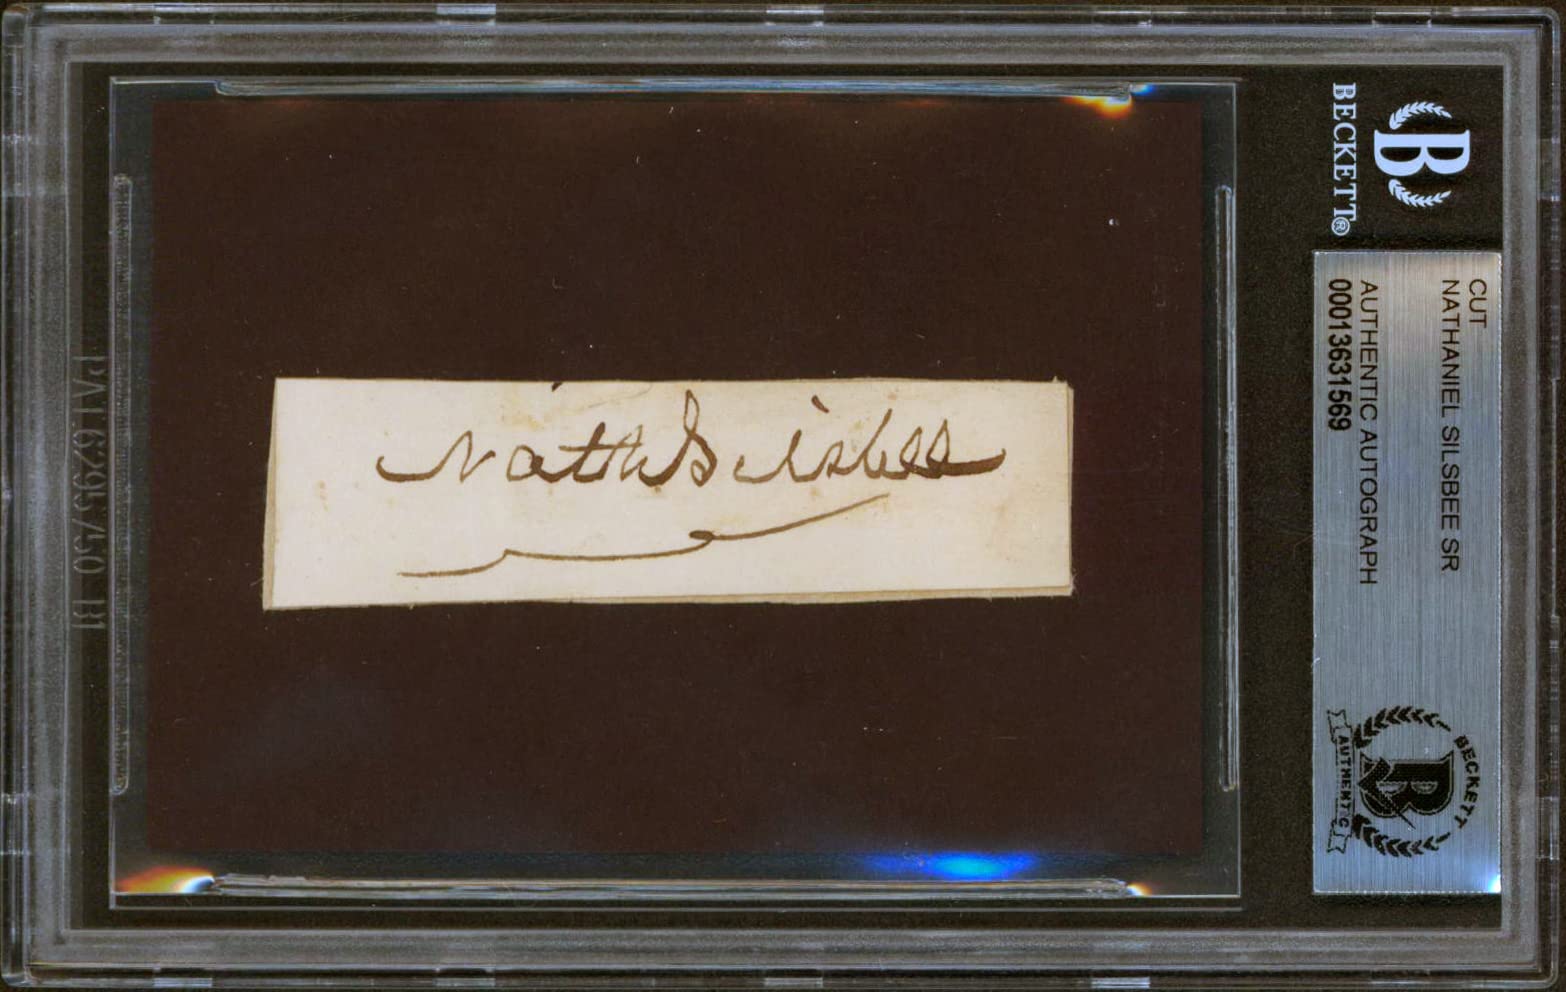 Nathl Silsbee
BECKETT®
CUT
NATHANIEL SILSBEE SR
AUTHENTIC AUTOGRAPH
00013631569
B
BECKETT
AUTHENTIC